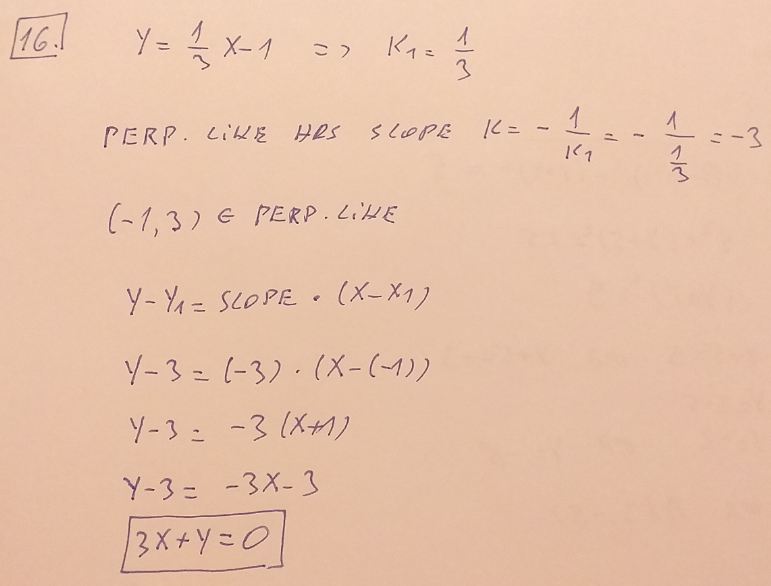 16. Y = 1/3 X - 1 => K1 = 1/3
PERP. LINE HAS SLOPE K = - 1/K1 = - 1/(1/3) = -3
(-1, 3) ∈ PERP. LINE
Y - Y1 = SLOPE · (X - X1)
Y - 3 = (-3) · (X - (-1))
Y - 3 = -3 (X+1)
Y - 3 = -3X - 3
3X + Y = 0